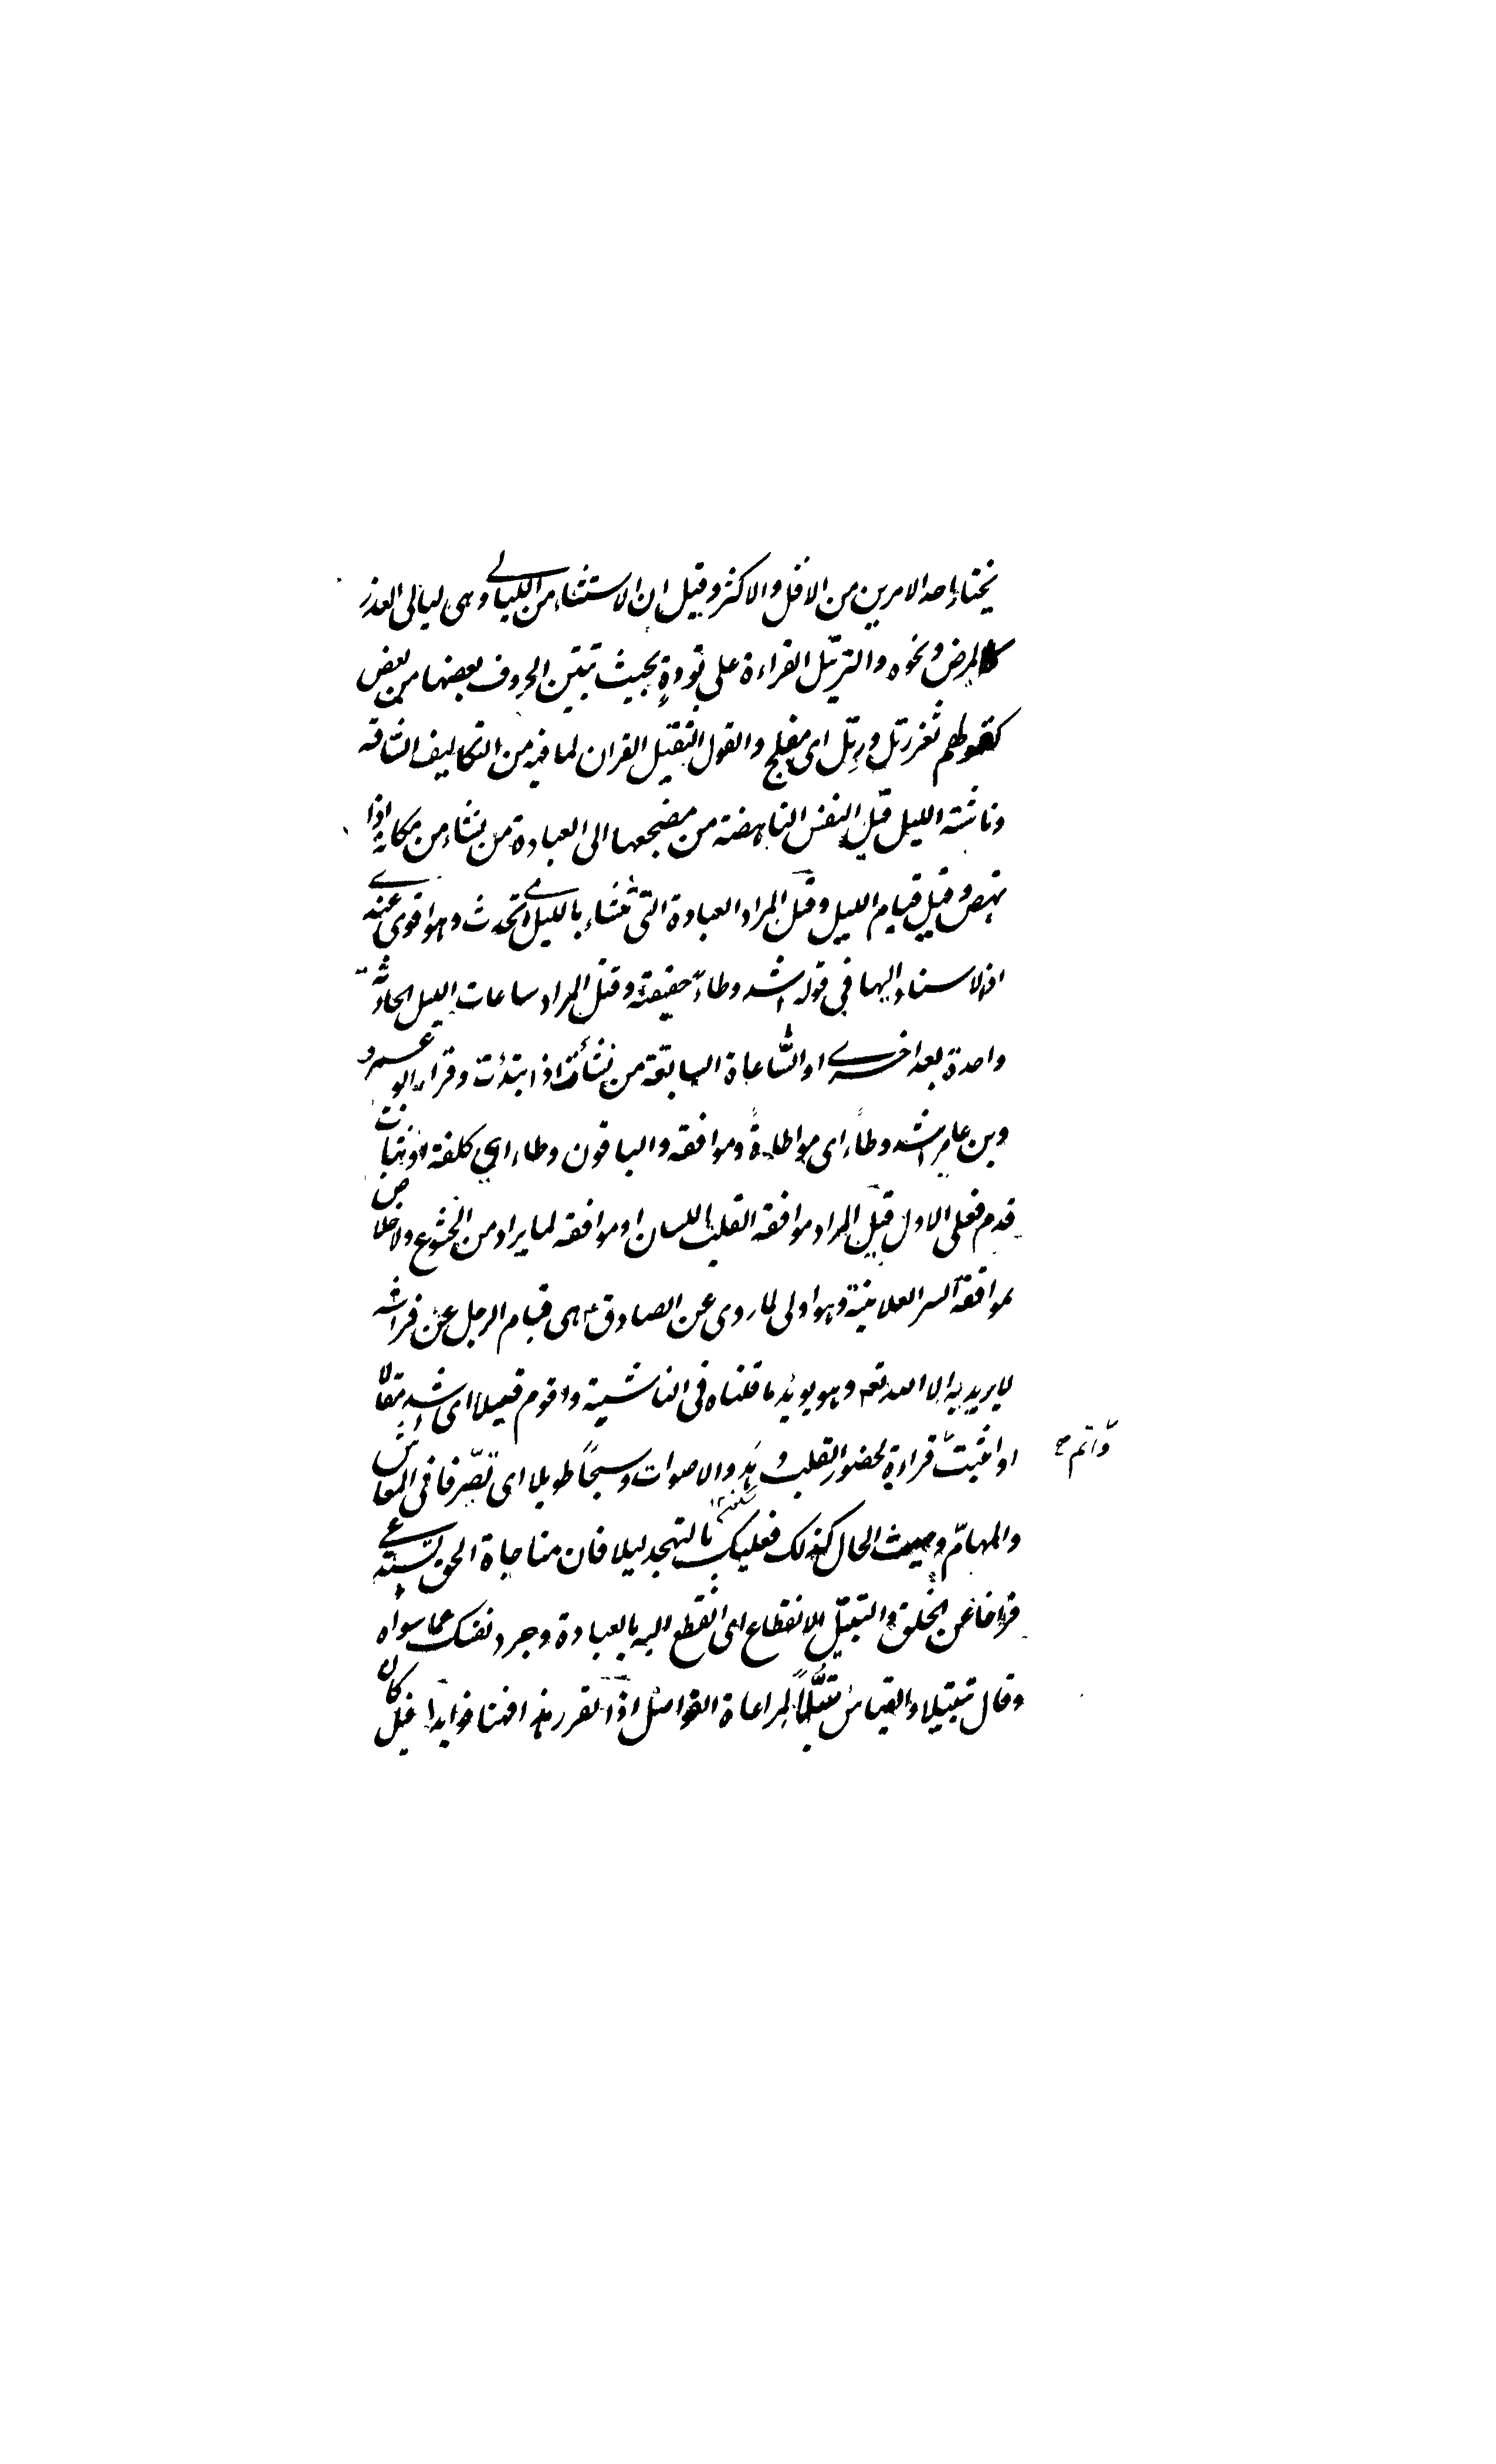 يختار احد الامرين من الاقل والاكثر وقيل ان الاستثناء من الليالي وهي ليالي العذر
كالمرض ونحوه والترتيل القراءة على تودة بحيث تبين الحروف بعضها من بعض
كقولهم ثغر رتل ورتل اى مفلج والقول الثقيل القران لما فيه من التكاليف الشاقه
وناشئة الليل قيل النفس الناهضة من مضجعها الى العبادة من نشاء من مكانه اذا
نهض وقيل قيام الليل وقيل المراد العبادة التى تنشاء بالليل اى تحدث وهو اقوى عندى
اذ الاسناد اليها في قوله اشد وطاء حقيقة وقيل المراد ساعات الليل الحادثة
واحدة بعد اخرى او الساعاة السابقة من نشأت اذ ابتدئت وقراء ابو عمرو
وبن عامر اشد وطاء اى مواطاة وموافقه والباقون وطاء اى كلفة او ثبات
قدم فعلى الاول قيل المراد موافقه القلب اللسان او موافقه لما يراد من الخشوع والاخلاص
بموافقة السر العلانية وهو اولى لما روى عن الصادق ع هى قيام الرجل عن فراشه
لا يريد به الا الله تعه وهو يويد ما قلناه فى الناشية واقوم قيلا اى اشد مقالا
او اثبت قراءة لحضور القلب وهدو الاصوات وسبحا طويلا اى تصرفا فى المعاش
واتم صح
والمهام وحيث الحال كذلك فعليك بالتهجد ليلا فان مناجاة الحق تستدعى
فراغا عن الخلق والتبتل الانقطاع اى انقطع اليه بالعبادة وجرد نفسك عما سواه
وقال تبتيلا والقياس تبتلا لمراعاة الفواصل اذا تقرر هذا فهنا فوايد ا قيل كان